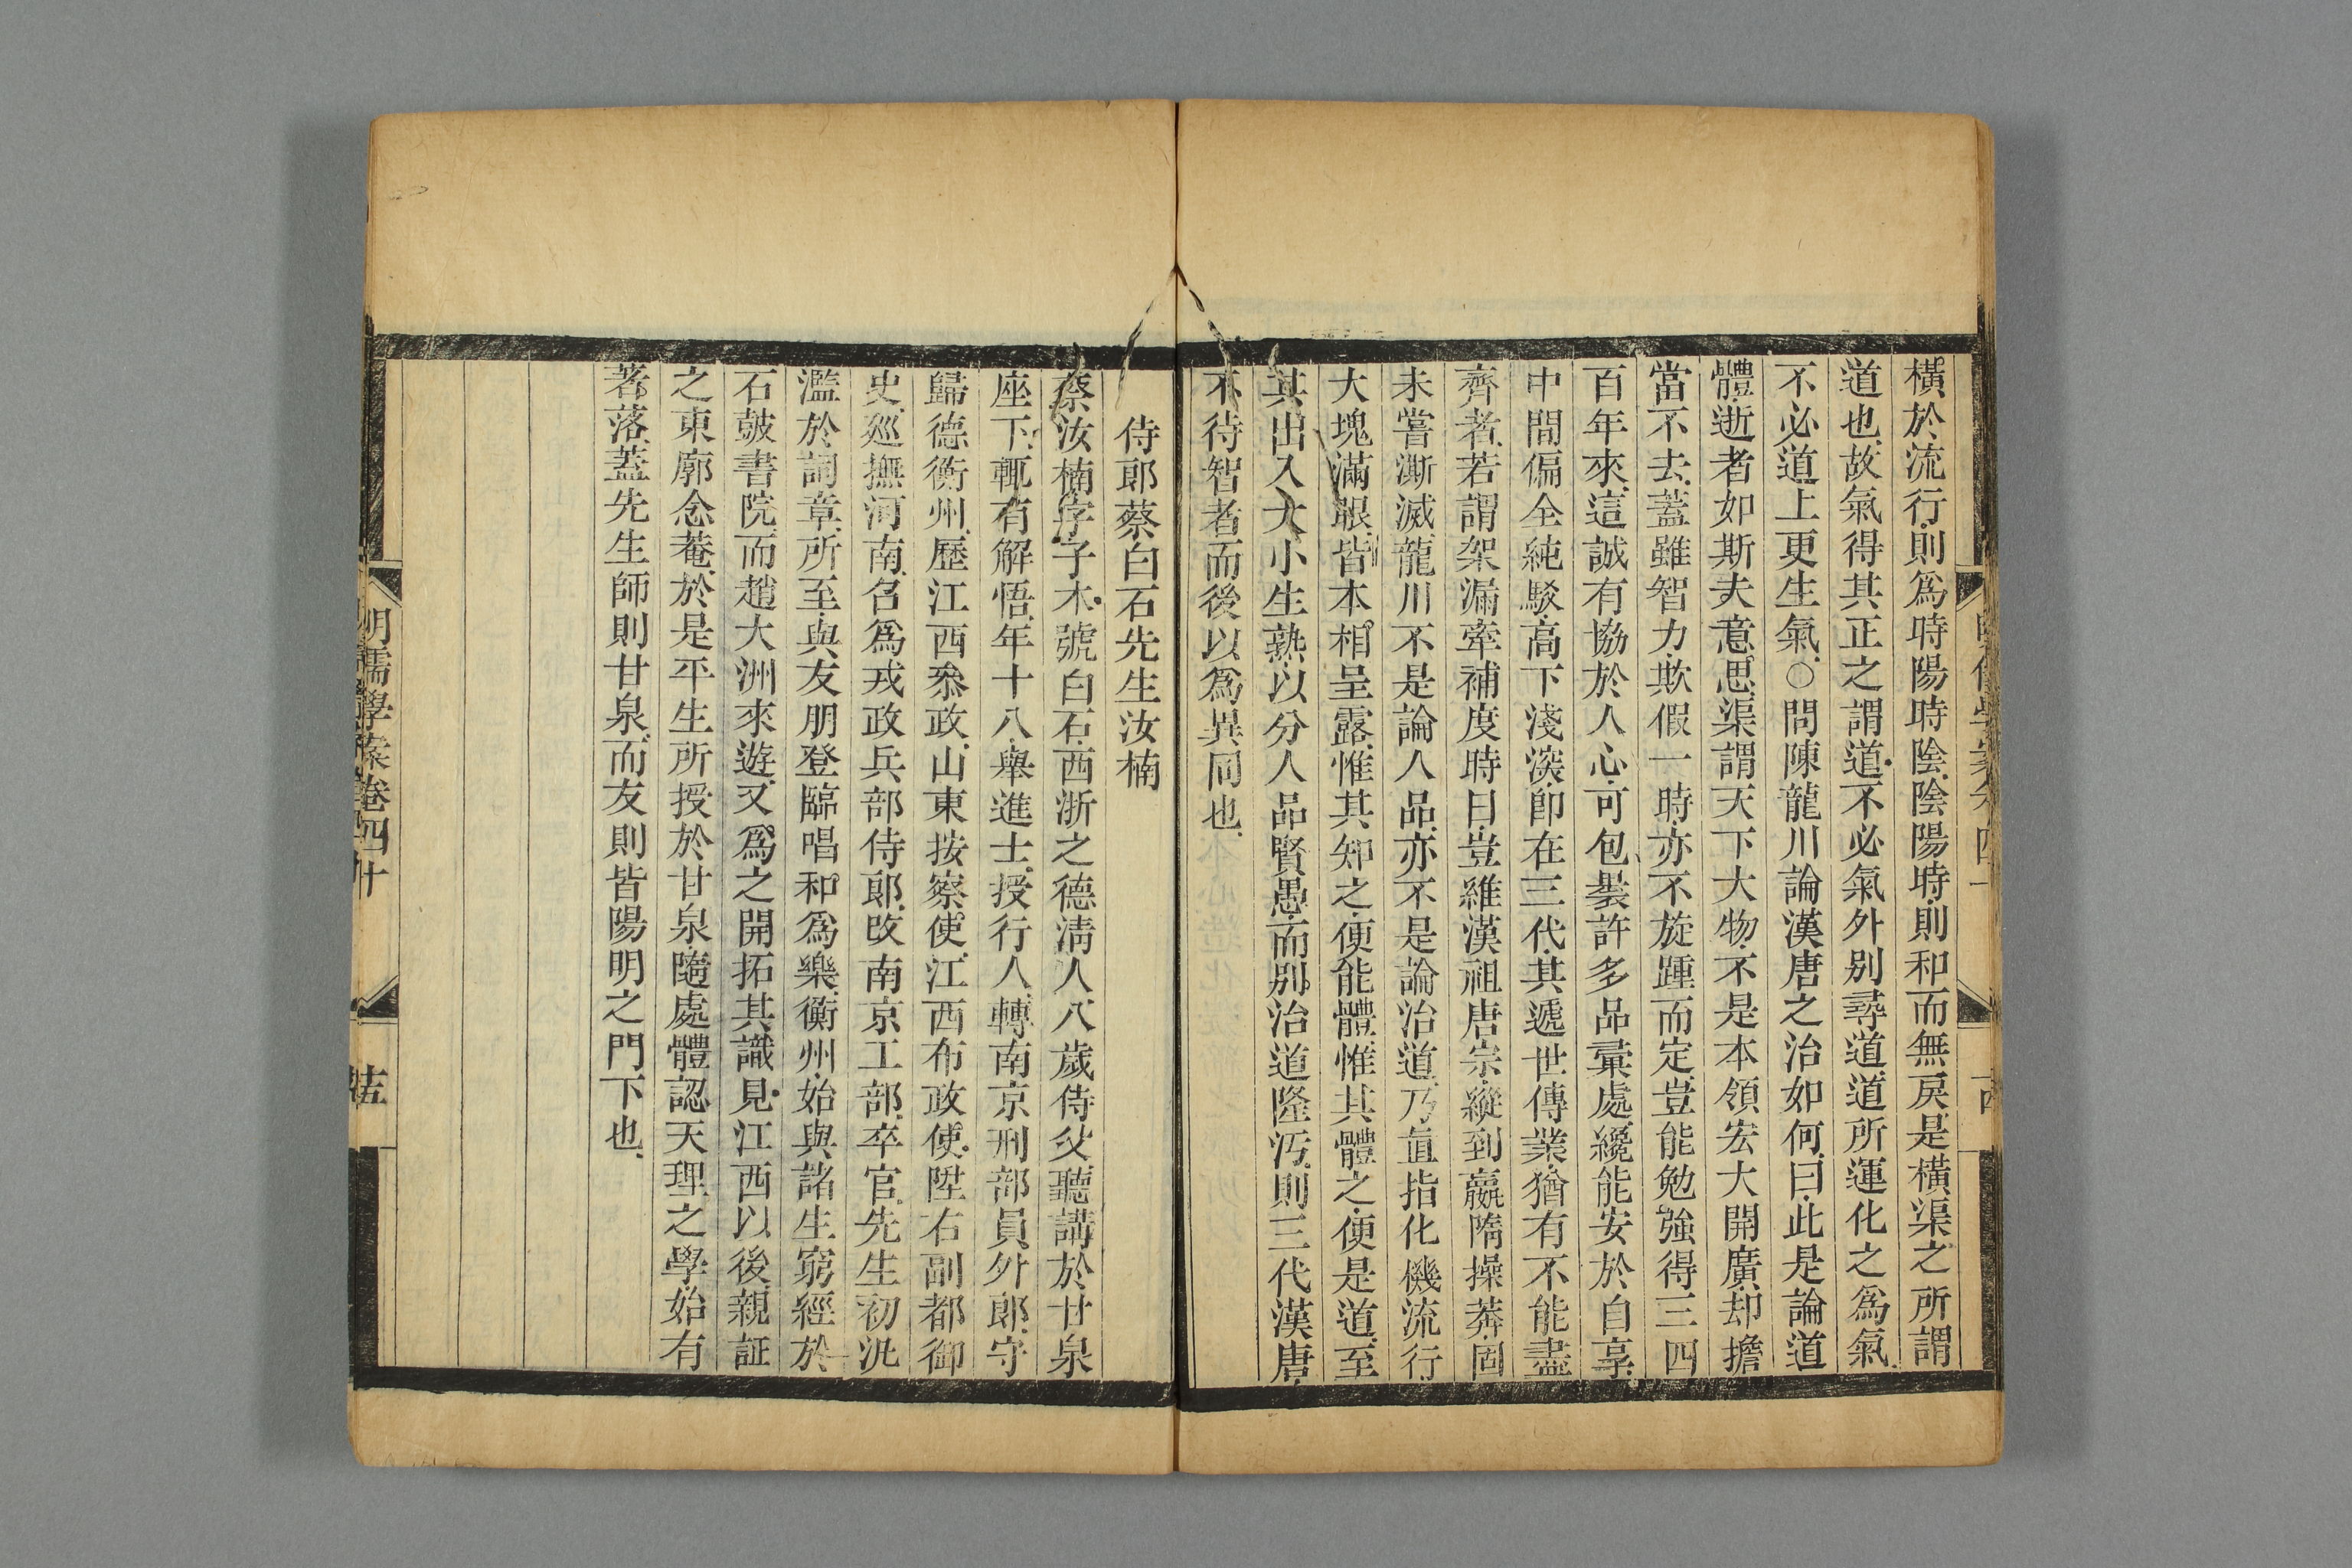 橫於流行則爲時陽時陰陰陽時則和而無戾是橫渠之所謂
道也故氣得其正之謂道不必氣外別尋道道所運化之爲氣
不必道上更生氣○問陳龍川論漢唐之治如何曰此是論道
體逝者如斯夫意思渠謂天下大物不是本領宏大開廣却擔
當不去蓋雖智力欺假一時亦不旋踵而定豈能勉強得三四
百年來這誠有協於人心可包褁許多品彙處纔能安於自享
中間偏全純駁高下淺深卽在三代其遞世傳業猶有不能盡
齊者若謂架漏牽補度時日豈維漢祖唐宗縱到嬴隋操莽固
未嘗澌滅龍川不是論人品亦不是論治道乃直指化機流行
大塊滿眼皆本相呈露惟其知之便能體惟其體之便是道至
其出入大小生熟以分人品賢愚而別治道隆污則三代漢唐
不待智者而後以爲異同也
侍郎蔡白石先生汝楠
蔡汝楠字子木號白石西浙之德淸人八歲侍父聽講於甘泉
座下輒有解悟年十八舉進士授行人轉南京刑部員外郎守
歸德衡州歷江西叅政山東按察使江西布政使陞右副都御
史廵撫河南召爲戎政兵部侍郎改南京工部卒官先生初汎
濫於詞章所至與友朋登臨唱和爲樂衡州始與諸生窮經於
石皷書院而趙大洲來遊又爲之開拓其識見江西以後親証
之東廓念菴於是平生所授於甘泉隨處體認天理之學始有
著落蓋先生師則甘泉而友則皆陽明之門下也
明儒學案卷四十